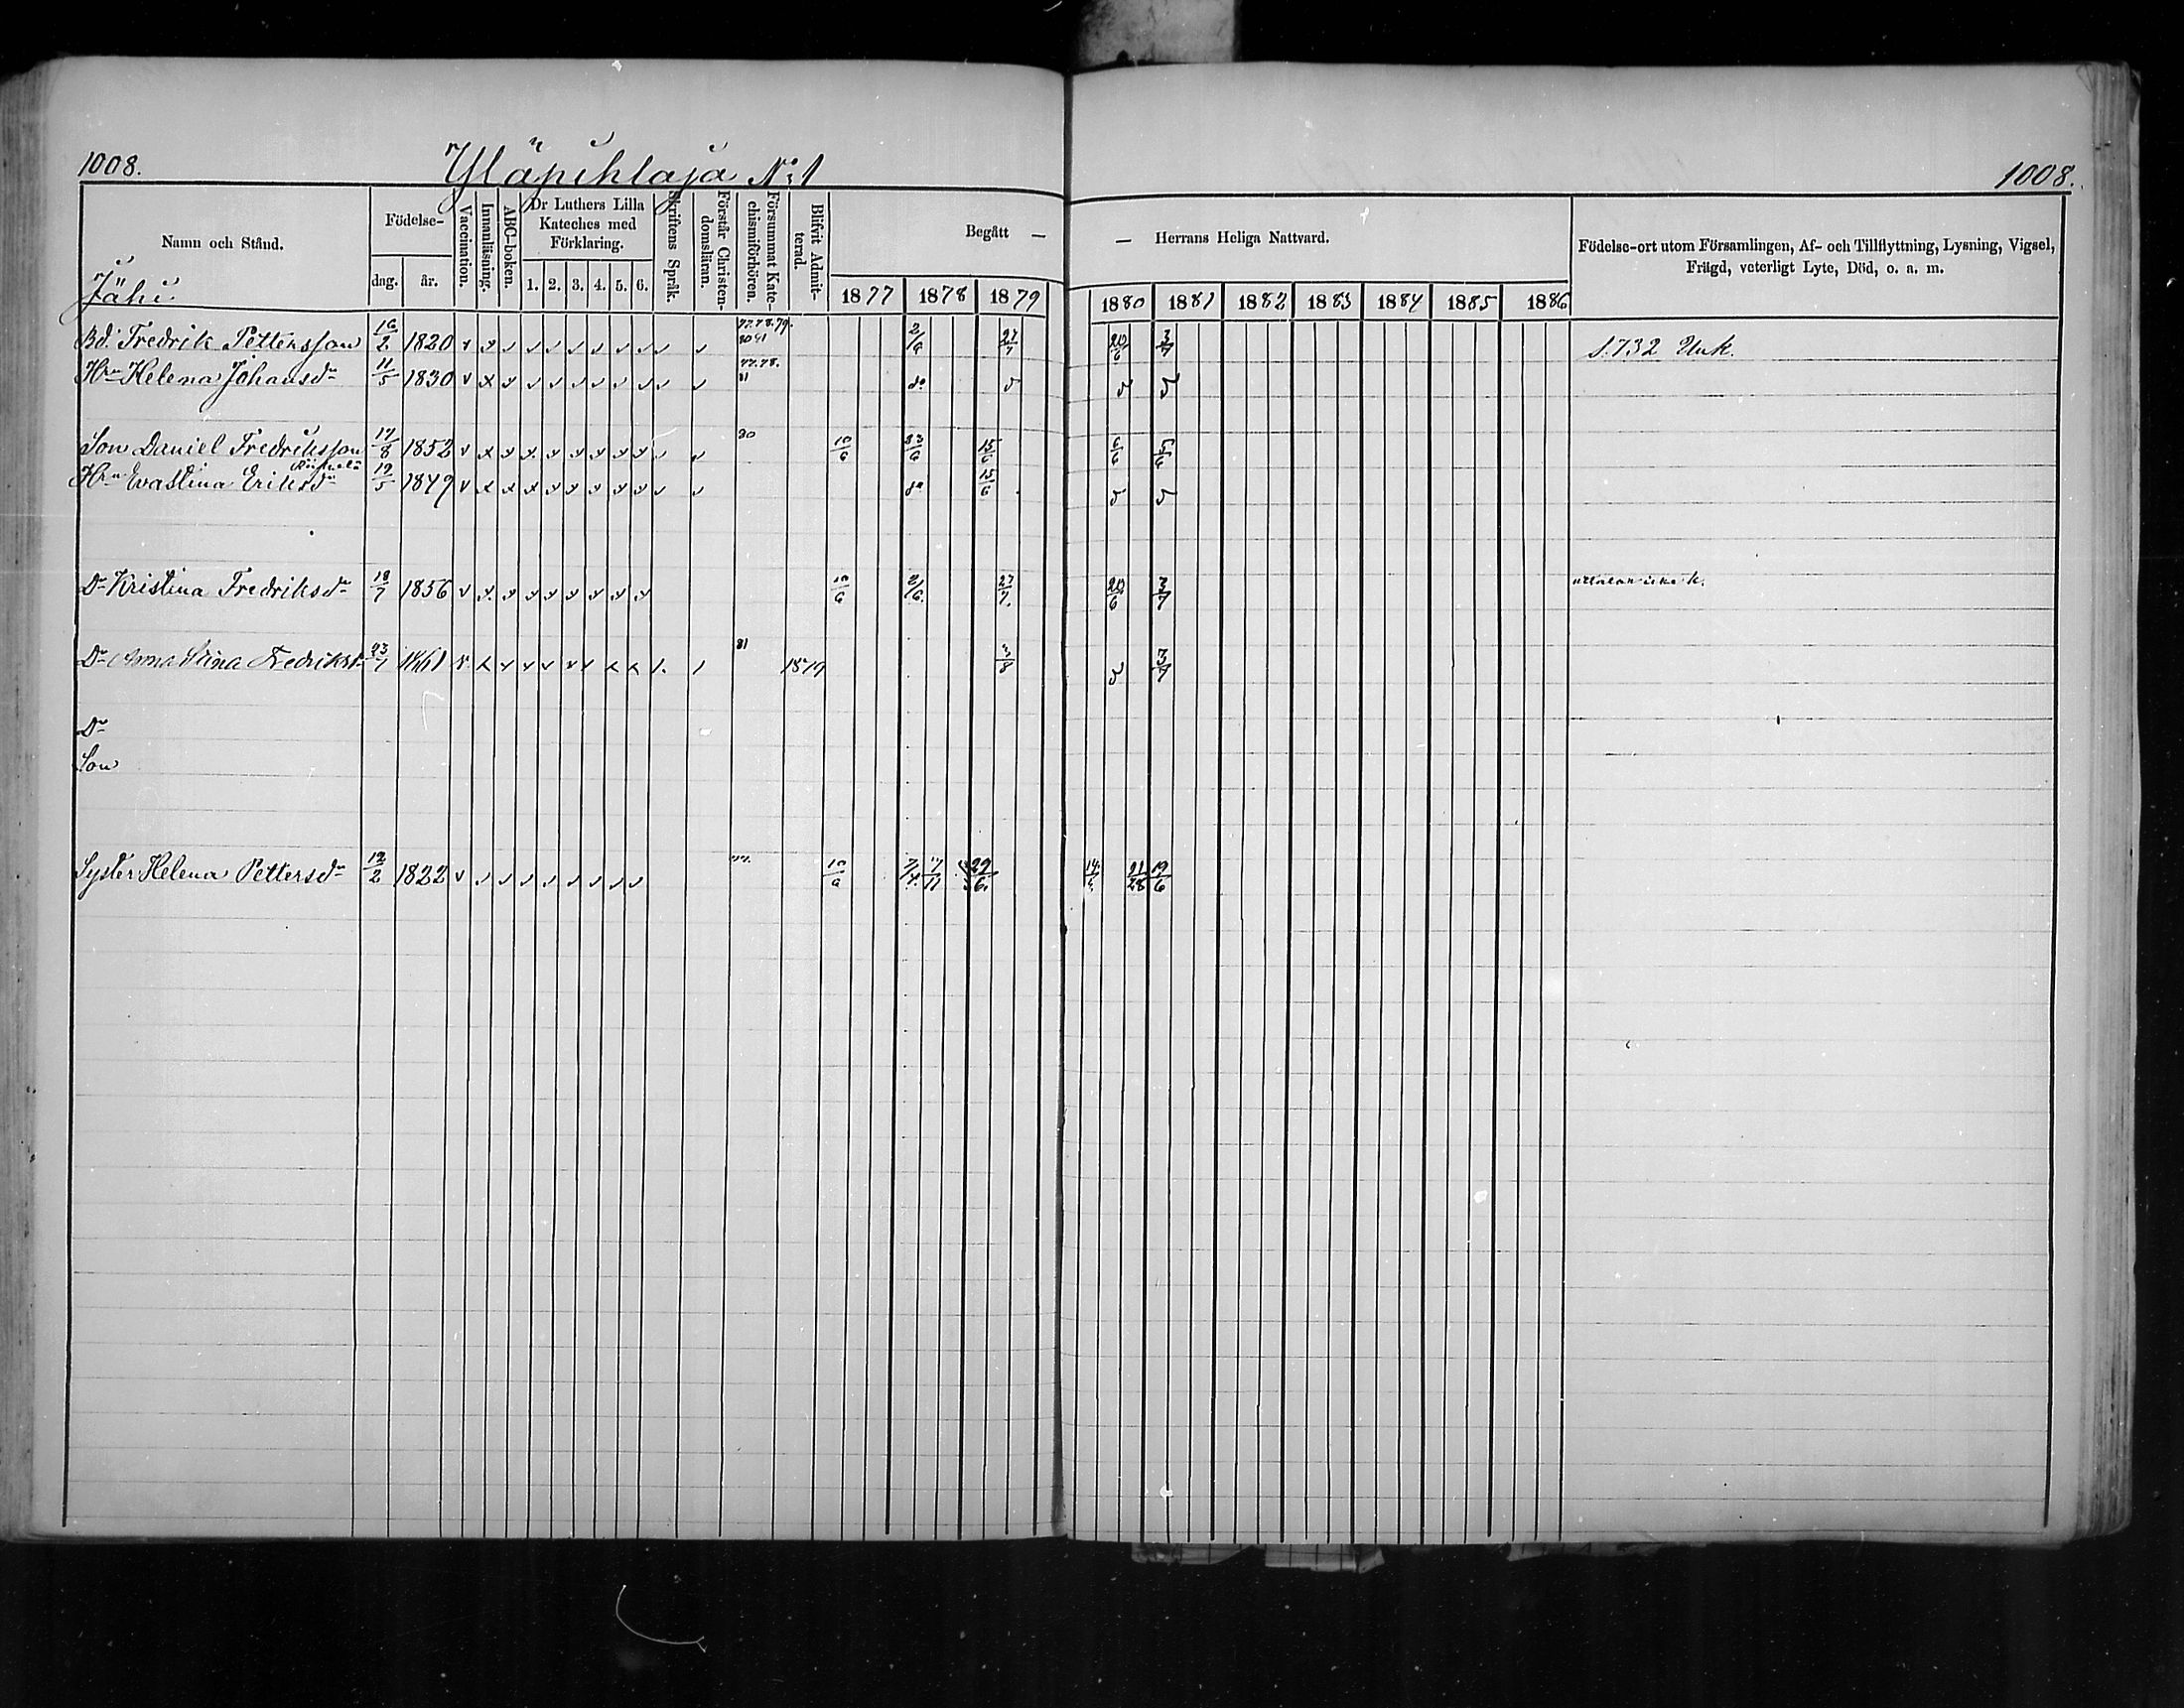 1008.
Yläpihlaja No 1
1008.
Namn och Stånd.
Födelse-
dag.
år.
Vaccination.
Innanläsning.
ABC-boken.
Dr Luthers Lilla
Kateches med
Förklaring.
1. 2. 3. 4. 5. 6.
Skriftens Språk.
Förstår Christen-
domsläran.
Försummat Kate-
chismiförhören.
Blifvit Admit-
terad.
Begått —
— Herrans Heliga Nattvard.
1877 1878 1879
1880 1881 1882 1883 1884 1885 1886
Födelse-ort utom Församlingen, Af- och Tillflyttning, Lysning, Vigsel,
Frägd, veterligt Lyte, Död, o. a. m.
Jähi
Bd. Fredrik Pettersson 16/2 1820 77.78.79. 2/6 27/7 20/6 3/7 S. 732 Unk.
Hu Helena Johansdr 11/5 1830 77.78. 81 do
Son Daniel Fredriksson 17/8 1852 80 10/6 23/6 15/6 6/6 5/6
Hu Evastina Eriksdr 12/5 1849 do 15/6
Dr Kristina Fredriksdr 18/7 1856 10/6 2/6. 27/7. 20/6 3/7
Dr Anna Stina Fredriksdr 23/7 1861 81 1879 3/8 3/7
Dr
Son
Syster Helena Pettersdr 12/2 1822 77. 10/6 29/6. 21/28 19/6